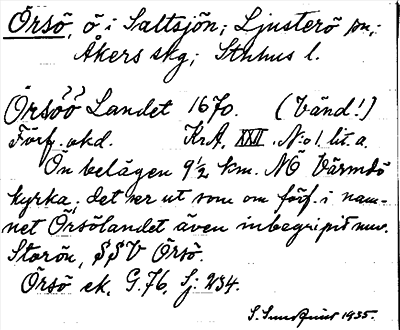 Örsö, ö i Saltsjön; Ljusterö sn;
Åkers skg; Sthlms l.
Örsöö Landet 1670. (Vänd!)
Förf. okd. KrA, XXII, N:o 1. lit. a.
Ön belägen 9½ km. NÖ Värmdö
kyrka; det ser ut som om förf. i nam-
net Örsölandet även inbegripit nuv.
Storön, SSV Örsö.
Örsö ek. G. 76, Sj. 234.
S. Sundquist 1935.